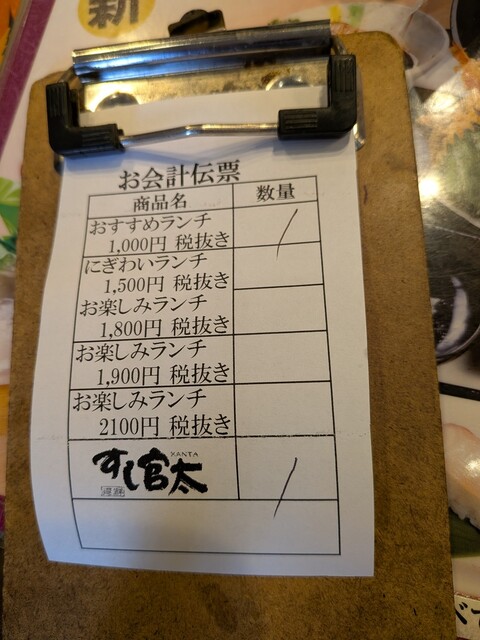 新
お会計伝票
商品名 数量
おすすめランチ /
1,000円 税抜き
にぎわいランチ
1,500円 税抜き
お楽しみランチ
1,800円 税抜き
お楽しみランチ
1,900円 税抜き
お楽しみランチ
2100円 税抜き
XANTA
すし官太 /